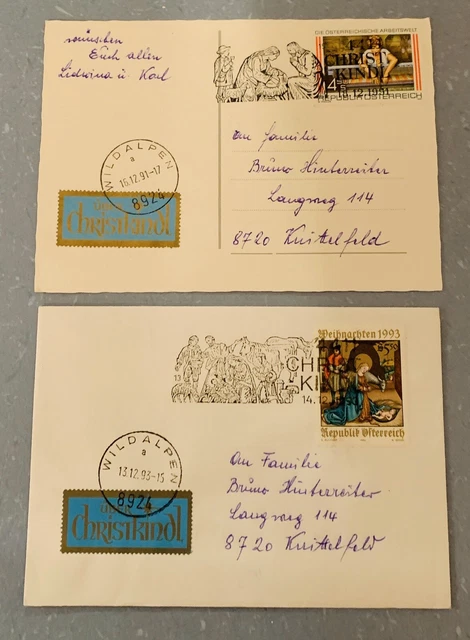 DIE ÖSTERREICHISCHE ARBEITSWELT
CHRIST
KINDL
12.1991
REPUBLIK ÖSTERREICH
wünschen
Euch allen
Lidwina u. Karl
WILDALPEN
a
16.12.91-17
8924
über
Christkindl
An Familie
Bruno Hinterreiter
Langweg 114
8720 Knittelfeld
Weihnachten 1993
CHRIST
KINDL
14.12.
Republik Österreich
WILDALPEN
a
13.12.93-15
8924
über
Christkindl
An Familie
Bruno Hinterreiter
Langweg 114
8720 Knittelfeld